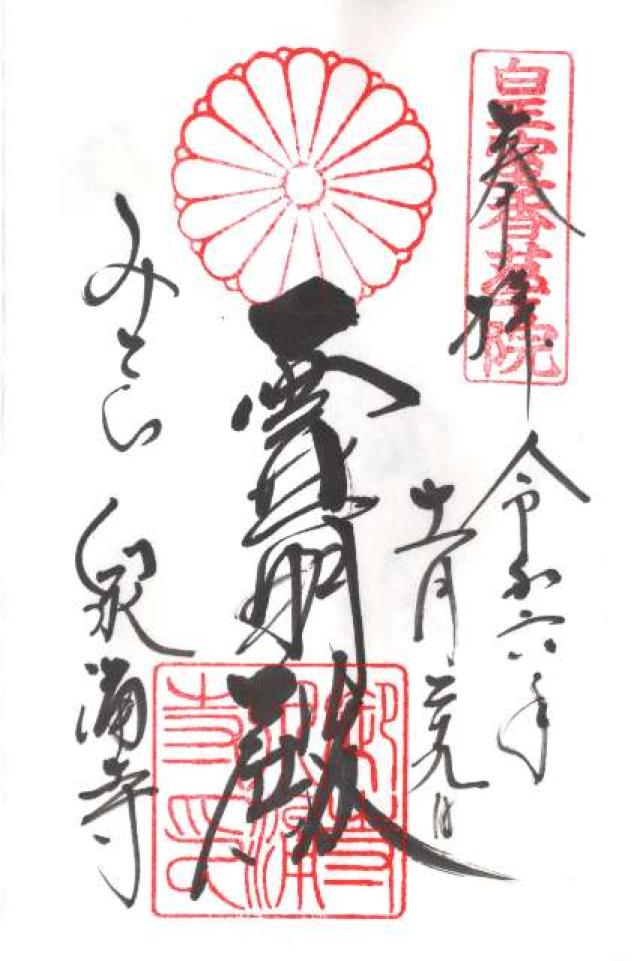 皇室香華院
奉拝
令和六年
十一月二十九日
霊明殿
みてら 泉涌寺
御寺泉涌寺印